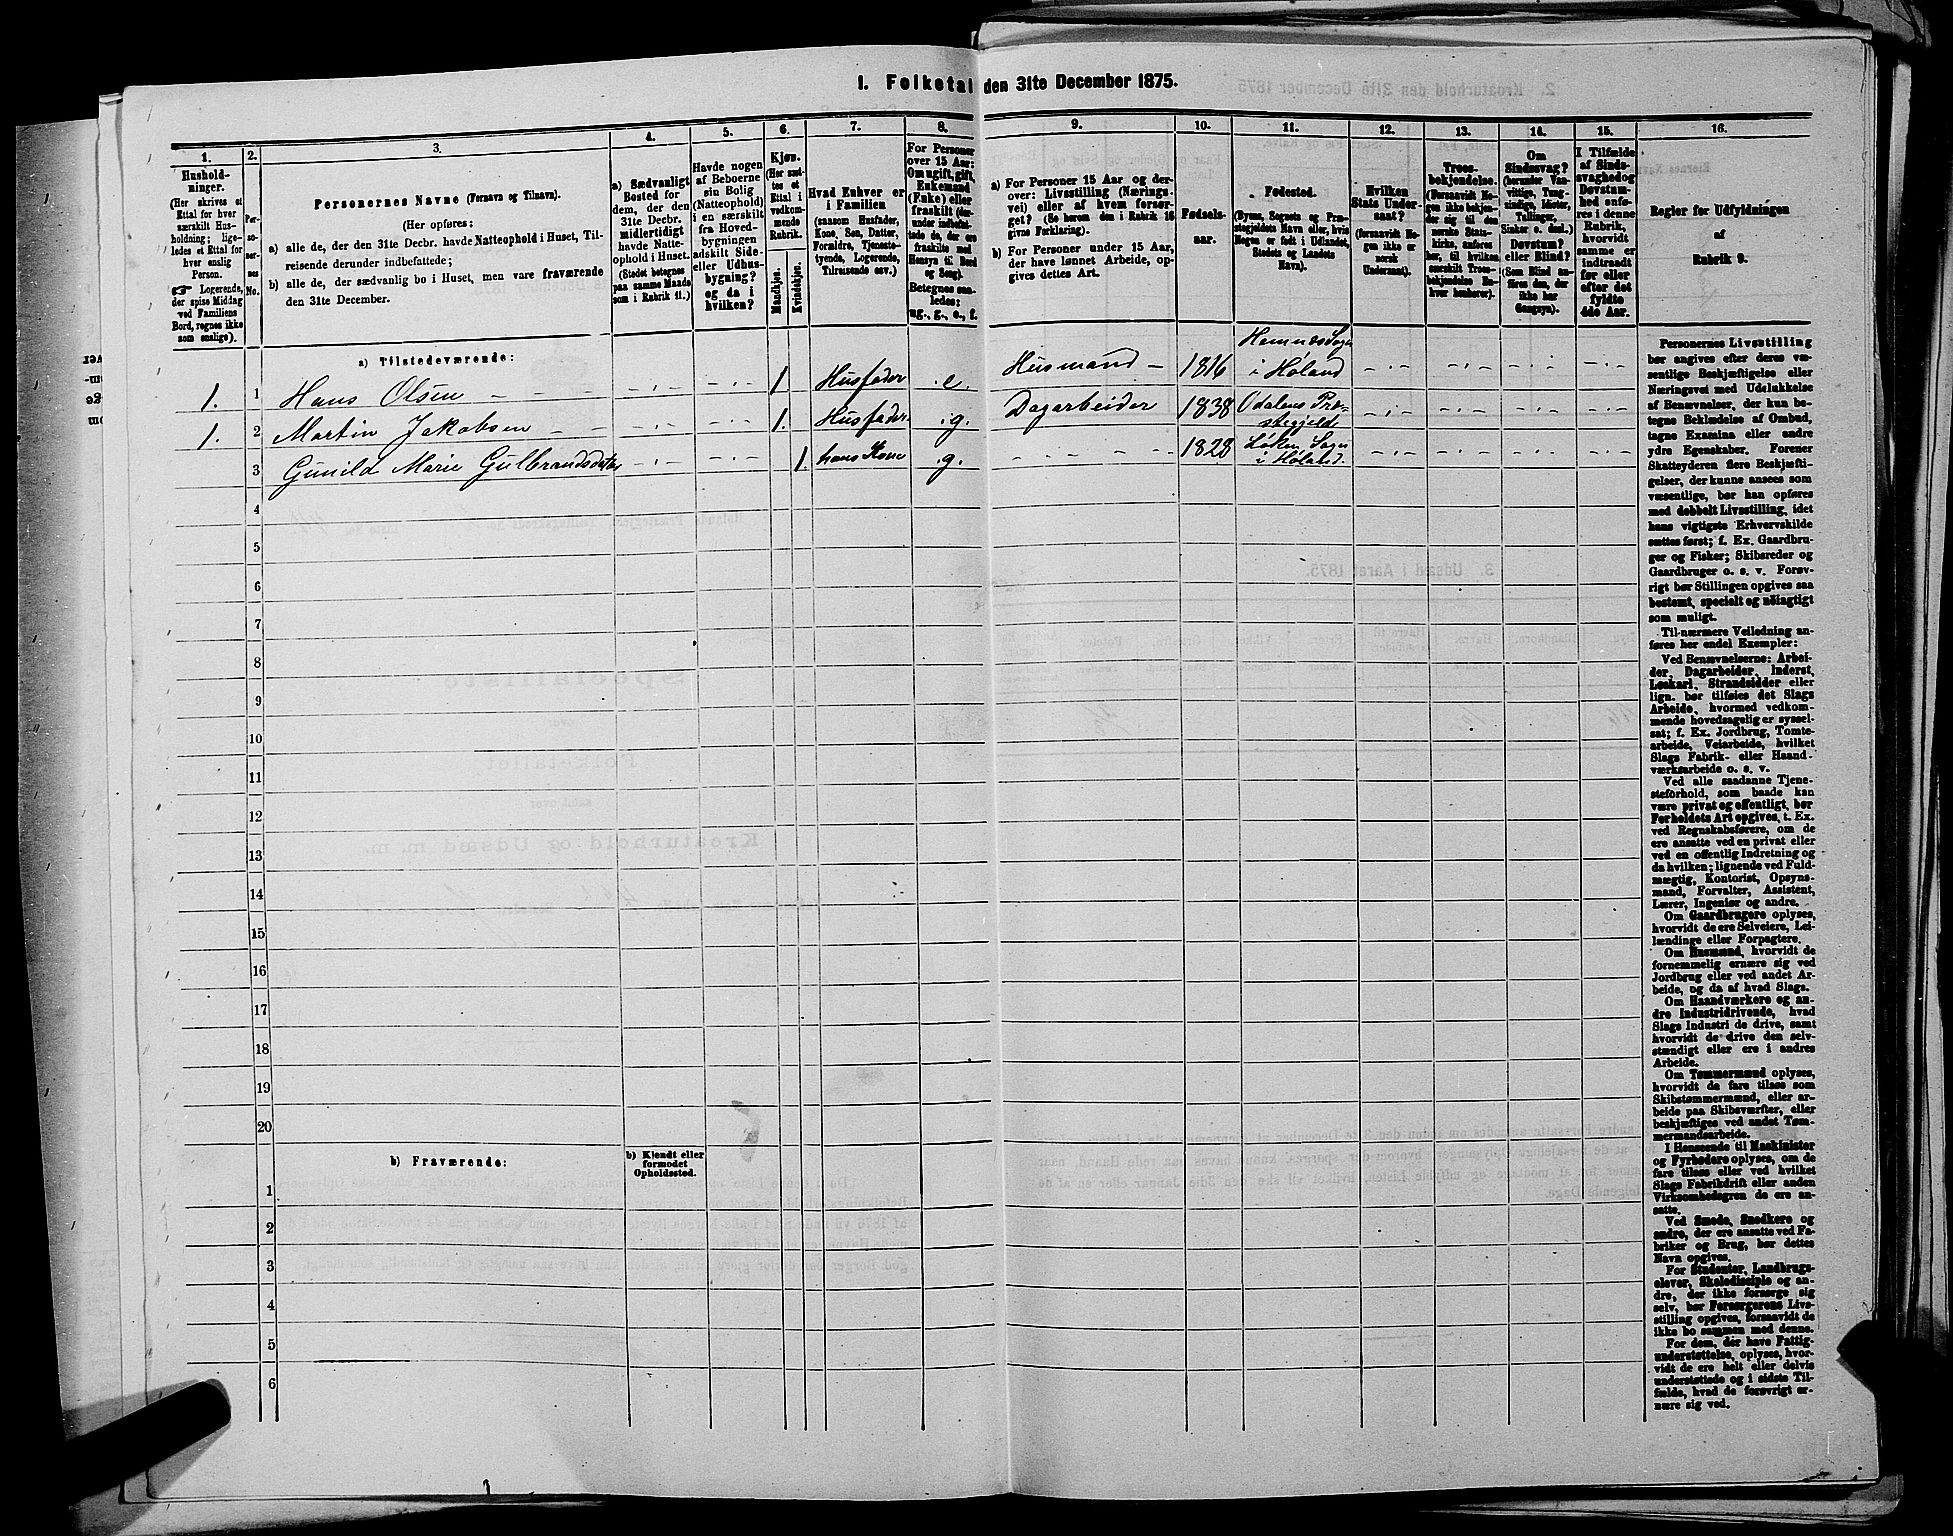 I. Folketal den 31te December 1875.
1.
2.
3.
4.
5.
6.
7.
8.
9.
10.
11.
12.
13.
14.
15.
16.
Hushold-
ninger.
(Her skrives et
Ettal for hver
særskilt Hus-
holdning; lige-
ledes et Ettal for
hver enslig
Person.
☞ Logerende,
der spise Middag
ved Familiens
Bord, regnes ikke
som enslige).
Per-
so-
ner-
nes
No.
Personernes Navne (Fornavn og Tilnavn).
(Her opføres:
a) alle de, der den 31te Decbr. havde Natteophold i Huset, Til-
reisende derunder indbefattede;
b) alle de, der sædvanlig bo i Huset, men vare fraværende
den 31te December.
a) Sædvanligt
Bosted for
dem, der den
31te Decbr.
midlertidigt
havde Natte-
ophold i Huset.
(Stedet betegnes
paa samme Maade
som i Rubrik 11.)
Havde nogen
af Beboerne
sin Bolig
(Natteophold)
i en særskilt
fra Hoved-
bygningen
adskilt Side-
eller Udhus-
bygning?
og da i
hvilken?
Kjøn.
(Her sæt-
tes et
Ettal i
vedkom-
mende
Rubrik.
Mandkjøn.
Kvindekjøn.
Hvad Enhver er
i Familien
(saasom Husfader,
Kone, Søn, Datter,
Forældre, Tjeneste-
tyende, Logerende,
Tilreisende osv.)
For Personer
over 15 Aar:
Om ugift, gift,
Enkemand
(Enke) eller
fraskilt (der-
under indbefat-
tede de, der ere
fraskilte med
Hensyn til Bord
og Seng).
Betegnes saa-
ledes:
ug., g., e., f.
a) For Personer 15 Aar og der-
over: Livsstilling (Nærings-
vei) eller af hvem forsør-
get? (Se herom den i Rubrik 16
givne Forklaring).
b) For Personer under 15 Aar,
der have lønnet Arbeide, op-
gives dettes Art.
Fødsels-
aar.
Fødested.
(Byens, Sognets og Præ-
stegjeldets Navn eller, hvis
Nogen er født i Udlandet,
Stedets og Landets
Navn).
Hvilken
Stats Under-
saat?
(forsaavidt No-
gen ikke er
norsk
Undersaat).
Troes-
bekjendelse.
(Forsaavidt No-
gen ikke bekjen-
der sig til den
norske Stats-
kirke, anføres
her, til hvilken
særskilt Troes-
bekjendelse En-
hver henhører).
Om
Sindssvag?
(herunder Van-
vittige, Tung-
sindige, Idioter,
Tullinger,
Sinker o. desl.)
Døvstum?
eller Blind?
(Som Blind an-
føres den, der
ikke har
Gangsyn).
I Tilfælde
af Sinds-
svaghed og
Døvstum-
hed anfø-
res i denne
Rubrik,
hvorvidt
samme er
indtraadt
før eller
efter det
fyldte
4de Aar.
Regler for Udfyldningen
af
Rubrik 9.
a) Tilstedeværende:
1. 1 Hans Olsen 1. Husfader e. Husmand 1816 Hemnæs Sogn
i Høland
1. 2 Martin Jakobsen 1. Husfader g. Dagarbeider 1838 Odalens Præ-
stegjeld
3 Gunild Marie Gulbrandsdatter 1. hans Kone g. 1828 Løken Sogn
i Høland.
4
5
6
7
8
9
10
11
12
13
14
15
16
17
18
19
20
b) Fraværende:
b) Kjendt eller
formodet
Opholdssted.
1
2
3
4
5
6
Personernes Livsstilling
bør angives efter deres væ-
sentlige Beskjæftigelse eller
Næringsvei med Udelukkelse
af Benævnelser, der kun be-
tegne Beklædelse af Ombud,
tagne Examina eller andre
ydre Egenskaber. Forener
Skatteyderen flere Beskjæfti-
gelser, der kunne ansees som
væsentlige, bør han opføres
med dobbelt Livsstilling, idet
hans vigtigste Erhvervskilde
sættes først; f. Ex. Gaardbru-
ger og Fisker; Skibsreder og
Gaardbruger o. s. v. Forøv-
rigt bør Stillingen opgives saa
bestemt, specielt og nøiagtigt
som muligt.
Til nærmere Veiledning an-
føres her endel Exempler:
Ved Benævnelserne: Arbei-
der, Dagarbeider, Inderst,
Løskarl, Strandsidder eller
lign. bør tilføies det Slags
Arbeide, hvormed vedkom-
mende hovedsagelig er syssel-
sat; f. Ex. Jordbrug, Tomte-
arbeide, Veiarbeide, hvilket
Slags Fabrik- eller Haand-
værksarbeide o. s. v.
Ved alle saadanne Tjene-
steforhold, som baade kan
være privat og offentligt, bør
Forholdets Art opgives, t. Ex.
ved Regnskabsførere, om de
ere ansatte ved en privat eller
ved en offentlig Indretning og
da hvilken; lignende ved Fuld-
mægtig, Kontorist, Opsyns-
mand, Forvalter, Assistent,
Lærer, Ingeniør og andre.
Om Gaardbrugere oplyses,
hvorvidt de ere Selveiere, Lei-
lændinge eller Forpagtere.
Om Husmænd, hvorvidt de
fornemmelig ernære sig ved
Jordbrug eller ved andet Ar-
beide, og da af hvad Slags.
Om Haandværkere og an-
dre Industridrivende, hvad
Slags Industri de drive, samt
hvorvidt de drive den selv-
stændigt eller ere i andres
Arbeide.
Om Tømmermænd oplyses,
hvorvidt de fare tilsøs som
Skibstømmermænd, eller ar-
beide paa Skibsværfter, eller
beskjæftiges ved andet Tøm-
mermandsarbeide.
I Henseende til Maskinister
og Fyrbødere oplyses, om de
fare tilsøs eller ved hvilket
Slags Fabrikdrift eller anden
Virksomhedsgren de ere an-
satte.
Ved Smede, Snedkere og
andre, der ere ansatte ved Fa-
briker og Brug, bør dettes
Navn opgives.
For Studenter, Landbrugs-
elever, Skoledisciple og an-
dre, der ikke forsørge sig
selv, bør Forsørgerens Livs-
stilling opgives, forsaavidt de
ikke bo sammen med denne.
For dem, der have Fattig-
understøttelse, oplyses, hvor-
vidt de ere helt eller delvis
understøttede og i sidste Til-
fælde, hvad de forøvrigt er-
nære sig ved.